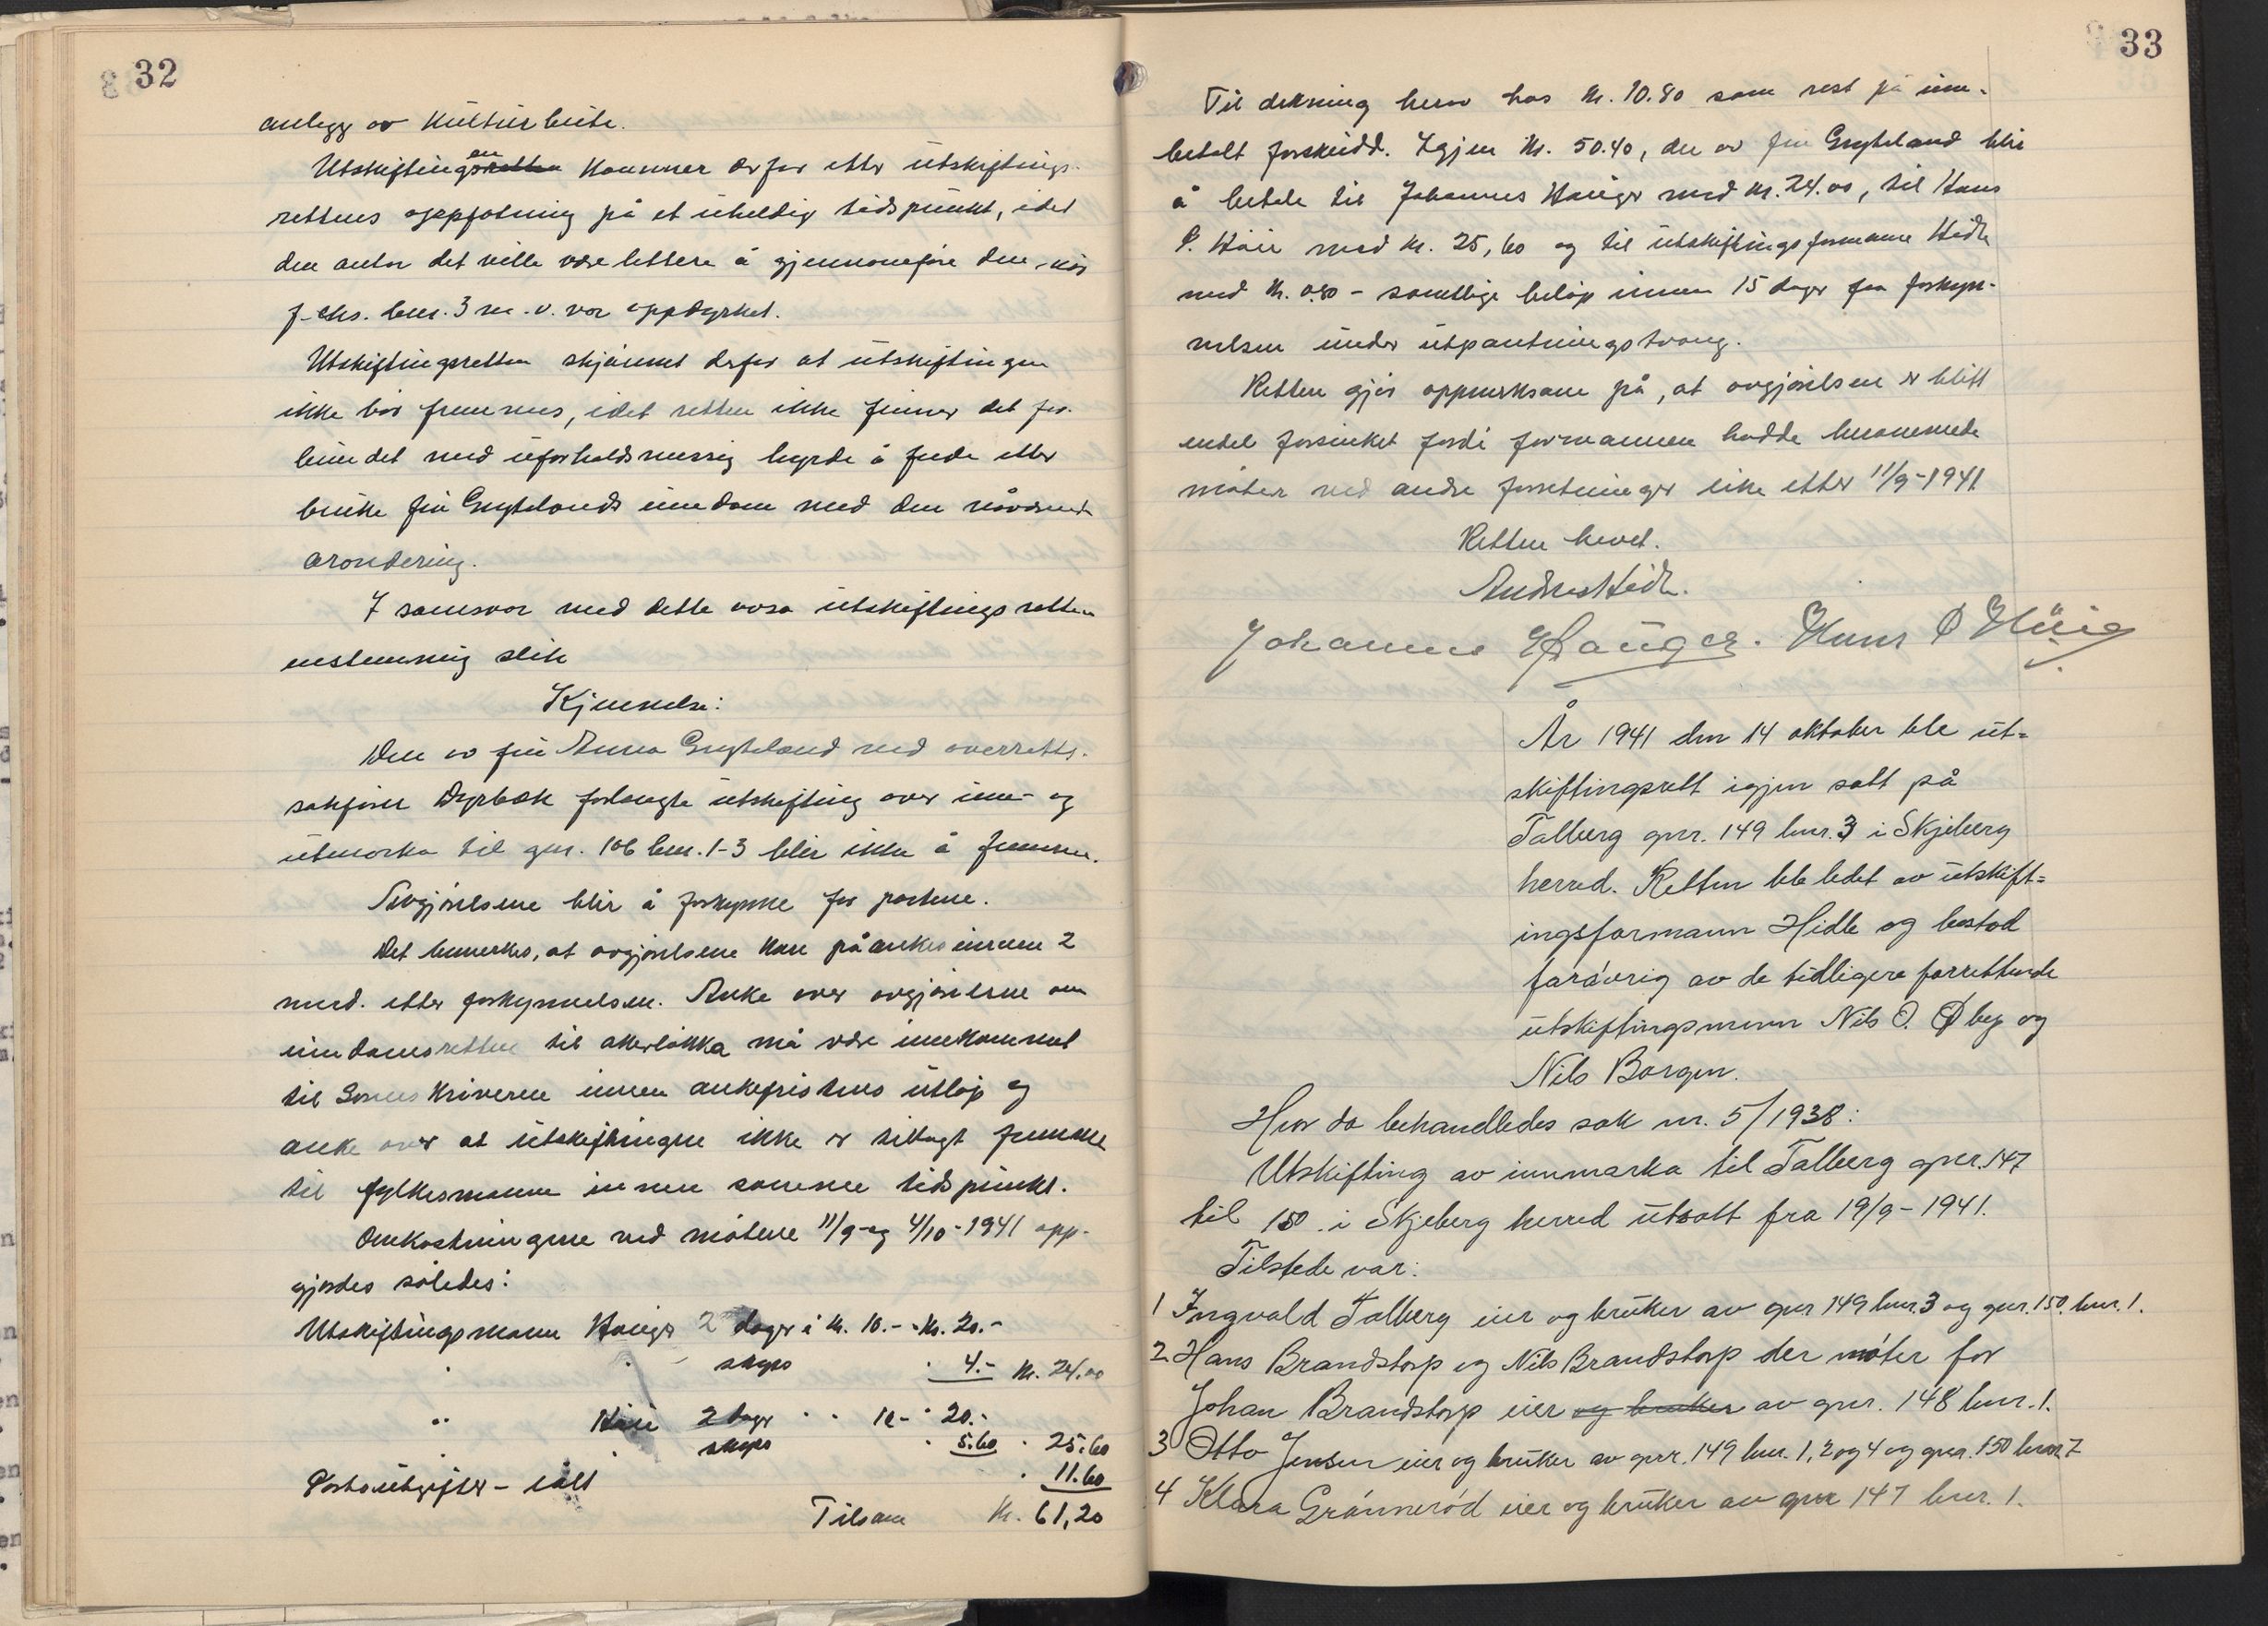 32
anlegg av kulturbeite.
Utskiftingen kommer derfor etter utskiftings-
rettens oppfatning på et uheldig tidspunkt, idet
den antar det ville være lettere å gjennomføre den, når
f. eks. bnr. 3 m. v. var oppdyrket.
Utskiftingsretten skjønnet derfor at utskiftingen
ikke bør fremmes, idet retten ikke finner det for-
bundet med uforholdsmessig byrde å eller
bruke fru Grytelands eiendom med den nåværende
arondering.
I samsvar med dette avsa utskiftingsretten
enstemmig slik
Kjennelse:
Den av fru Anna Gryteland ved overretts-
sakfører Dyrbæk forlangte utskifting over inn- og
utmarka til gnr. 106 bnr. 1-3 blir ikke å fremme.
Avgjørelsene blir å forkynne for partene.
Det bemerkes, at avgjørelsene kan påankes innen 2
mnd. etter forkynnelsen. Anke over avgjørelsene om
eiendomsretten til åkerløkka må være innkommet
til Sorenskriveren innen ankefristens utløp og
anke over at utskiftningen ikke er tillagt fremme
til fylkesmannen innen samme tidspunkt.
Omkostningene ved møtene 11/9 og 4/10-1941 opp-
gjordes således:
Utskiftingsmann Hauger 2 dager à kr. 10.- kr. 20.-
" " skyss " 4.- kr. 24.00
" Huie 2 dager " " 10.- " 20.-
" skyss " 5.60 " 25.60
Portoutgifter - ialt " 11.60
Tilsam kr. 61,20
33
Til dekning herav has kr. 10.80 som rest på inn-
betalt forskudd. Igjen kr. 50.40, den av fru Gryteland blir
å betale til Johannes Hauger med kr. 24.00, til Hans
P. Huie med kr. 25,60 og til utskiftingsformann Hidle
med kr. 0.80 - samtlige beløp innen 15 dager fra forkyn-
nelsen under utpantningstvang.
Retten gjør oppmerksom på, at avgjørelsene er blitt
endel forsinket fordi formannen hadde berammede
møter ved andre forretninger like etter 11/9-1941
Retten hevet.
Andreas Hidle.
Johannes Hauger. Hans P Huie
År 1941 den 14 oktober ble ut=
skiftingsrett igjen satt på
Talberg gnr. 149 bnr. 3 i Skjeberg
herred. Retten ble ledet av utskift=
ingsformann Hidle og bestod
forøvrig av de tidligere forrettende
utskiftingsmenn Nils O. Øby og
Nils Borgen.
Hvor da behandledes sak nr. 5/1938:
Utskifting av innmarka til Talberg gnr. 147
til 150 i Skjeberg herred utsatt fra 19/9-1941.
Tilstede var:
1 Ingvald Talberg eier og bruker av gnr 149 bnr. 3 og gnr. 150. bnr. 1.
2 Hans Brandstorp og Nils Brandstorp der møter for
Johan Brandstorp eier og bruker av gnr. 148 bnr. 1.
3 Otto Jensen eier og bruker av gnr. 149 bnr. 1, 2 og 4 og gnr. 150 bnr 7
4 Klara Grønnerød eier og bruker av gnr 147 bnr. 1.